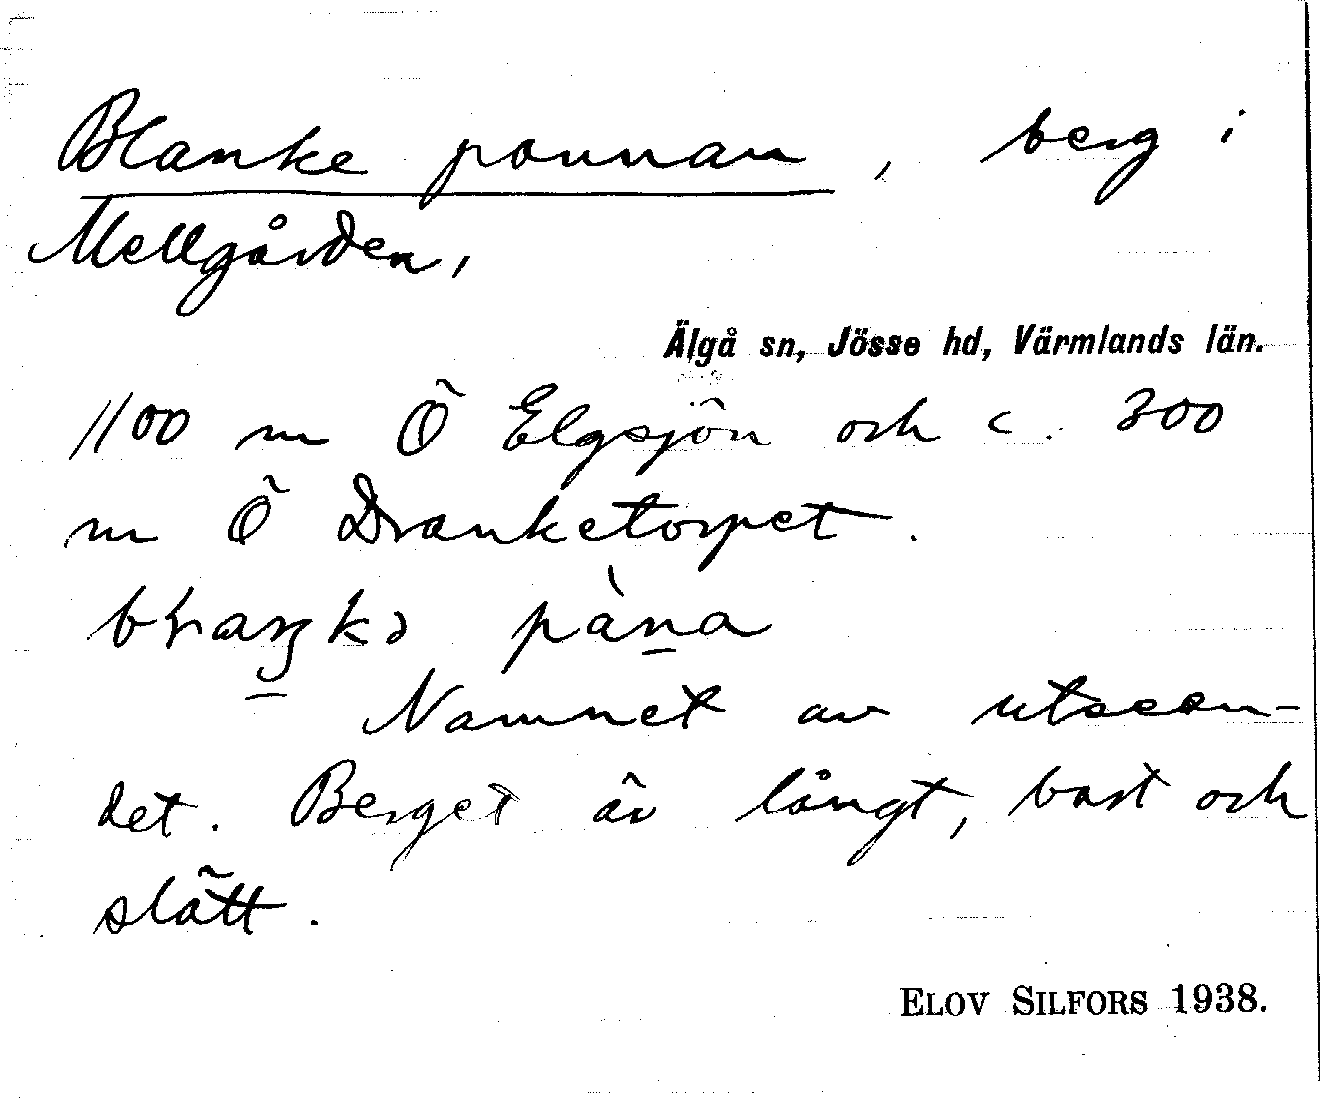 Blanke pannan, berg i
Mellgården,
Älgå sn, Jösse hd, Värmlands län.
1100 m Ö Elgsjön och c. 300
m Ö Dranketorpet.
pàna
Namnet av utseen-
det. Berget är långt, bart och
slätt.
ELOV SILFORS 1938.